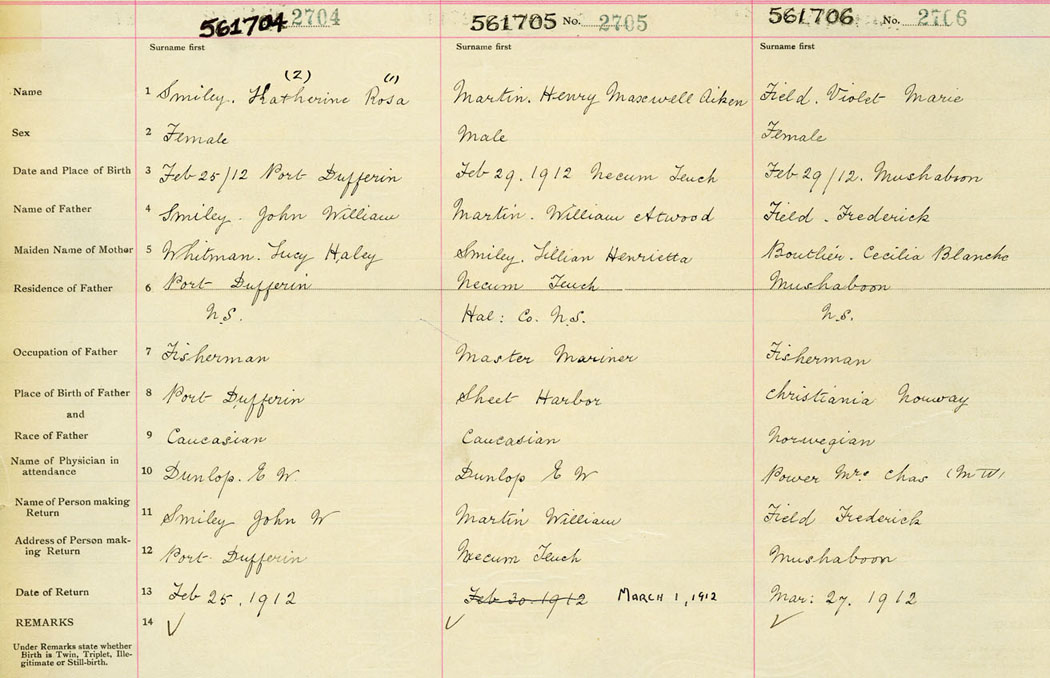 561704 2704 561705 No. 2705 561706 No. 2706
Surname first Surname first Surname first
(2) (1)
Name 1 Smiley. Katherine Rosa Martin. Henry Maxwell Aiken Field. Violet Marie
Sex 2 Female Male Female
Date and Place of Birth 3 Feb 25/12 Port Dufferin Feb 29. 1912 Necum Teuch Feb 29/12. Mushaboon
Name of Father 4 Smiley. John William Martin. William Atwood Field. Frederick
Maiden Name of Mother 5 Whitman. Lucy Haley Smiley. Lillian Henrietta Boutlier. Cecilia Blanche
Residence of Father 6 Port Dufferin Necum Teuch Mushaboon
N.S. Hal: Co. N.S. N.S.
Occupation of Father 7 Fisherman Master Mariner Fisherman
Place of Birth of Father 8 Port Dufferin Sheet Harbor Christiania Norway
and
Race of Father 9 Caucasian Caucasian Norwegian
Name of Physician in
attendance 10 Dunlop. E W. Dunlop E W Power Mrs. Chas (M W)
Name of Person making
Return 11 Smiley John W Martin William Field Frederick
Address of Person mak-
ing Return 12 Port Dufferin Necum Teuch Mushaboon
Date of Return 13 Feb 25. 1912 Feb 30. 1912 MARCH 1, 1912 Mar: 27. 1912
REMARKS 14 ✓ ✓ ✓
Under Remarks state whether
Birth is Twin, Triplet, Ille-
gitimate or Still-birth.